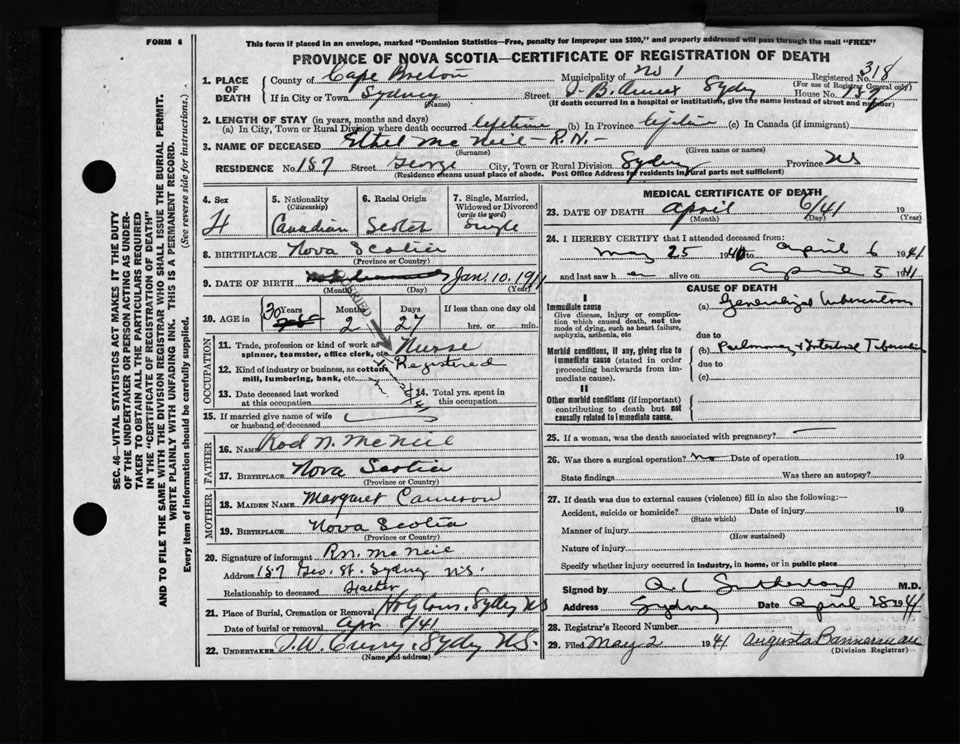 FORM 6
This form if placed in an envelope, marked "Dominion Statistics—Free, penalty for improper use $300," and properly addressed will pass through the mail "FREE"
PROVINCE OF NOVA SCOTIA—CERTIFICATE OF REGISTRATION OF DEATH
1. PLACE OF DEATH County of Cape Breton Municipality of No 1 Registered No. 318
(For use of Registrar General only)
If in City or Town Sydney Street T. B. Annex Sydney House No. 187
(Name) (If death occurred in a hospital or institution, give the name instead of street and number)
2. LENGTH OF STAY (in years, months and days)
(a) In City, Town or Rural Division where death occurred lifetime (b) In Province lifetime (c) In Canada (if immigrant)
3. NAME OF DECEASED Ethel Mc Neil - R.N. -
(Surname) (Given name or names)
RESIDENCE No. 187 Street George City, Town or Rural Division Sydney Province NS
(Residence means usual place of abode. Post Office Address for residents in rural parts not sufficient)
4. Sex F
5. Nationality (Citizenship) Canadian
6. Racial Origin Scotch
7. Single, Married, Widowed or Divorced (write the word) Single
8. BIRTHPLACE Nova Scotia
(Province or Country)
9. DATE OF BIRTH Jan. 10, 1911
(Month) (Day) (Year)
10. AGE in 30 Years 2 Months 27 Days If less than one day
hrs. or min.
OCCUPATION
11. Trade, profession or kind of work as spinner, teamster, office clerk, etc. Nurse
12. Kind of industry or business, as cotton mill, lumbering, bank, etc. Registered
13. Date deceased last worked at this occupation
14. Total yrs. spent in this occupation
15. If married give name of wife or husband of deceased
FATHER
16. NAME Rod N. McNeil
17. BIRTHPLACE Nova Scotia
(Province or Country)
MOTHER
18. MAIDEN NAME Margaret Cameron
19. BIRTHPLACE Nova Scotia
(Province or Country)
20. Signature of informant R.N. McNeil
Address 187 Geo. St. Sydney N.S.
Relationship to deceased Father
21. Place of Burial, Cremation or Removal Holy Cross, Sydney NS
Date of burial or removal Apr 8/41
22. UNDERTAKER T.W. Curry, Sydney N.S.
(Name and address)
MEDICAL CERTIFICATE OF DEATH
23. DATE OF DEATH April 6/41 19
(Month) (Day) (Year)
24. I HEREBY CERTIFY that I attended deceased from:
May 25 1940 to April 6 1941
and last saw h er alive on April 5 1941
CAUSE OF DEATH
I
Immediate cause
Give disease, injury or complication which caused death, not the mode of dying, such as heart failure, asphyxia, asthenia, etc
(a) Generalized Tuberculosis
due to
Morbid conditions, if any, giving rise to immediate cause (stated in order proceeding backwards from immediate cause).
(b) Pulmonary & Intestinal Tuberculosis
due to
(c)
II
Other morbid conditions (if important) contributing to death but not causally related to immediate cause.
25. If a woman, was the death associated with pregnancy? —
26. Was there a surgical operation? No Date of operation 19
State findings Was there an autopsy?
27. If death was due to external causes (violence) fill in also the following:—
Accident, suicide or homicide? Date of injury 19
(State which)
Manner of injury
(How sustained)
Nature of injury
Specify whether injury occurred in industry, in home, or in public place
Signed by A C Sutherland M.D.
Address Sydney Date April 28 1941
28. Registrar's Record Number
29. Filed May 2 1941 Augusta Bannerman
(Division Registrar)
SEC. 46—VITAL STATISTICS ACT MAKES IT THE DUTY
OF THE UNDERTAKER OR PERSON ACTING AS UNDER-
TAKER TO OBTAIN ALL THE PARTICULARS REQUIRED
IN THE "CERTIFICATE OF REGISTRATION OF DEATH"
AND TO FILE THE SAME WITH THE DIVISION REGISTRAR WHO SHALL ISSUE THE BURIAL PERMIT.
WRITE PLAINLY WITH UNFADING INK. THIS IS A PERMANENT RECORD.
Every item of information should be carefully supplied. (See reverse side for instructions.)